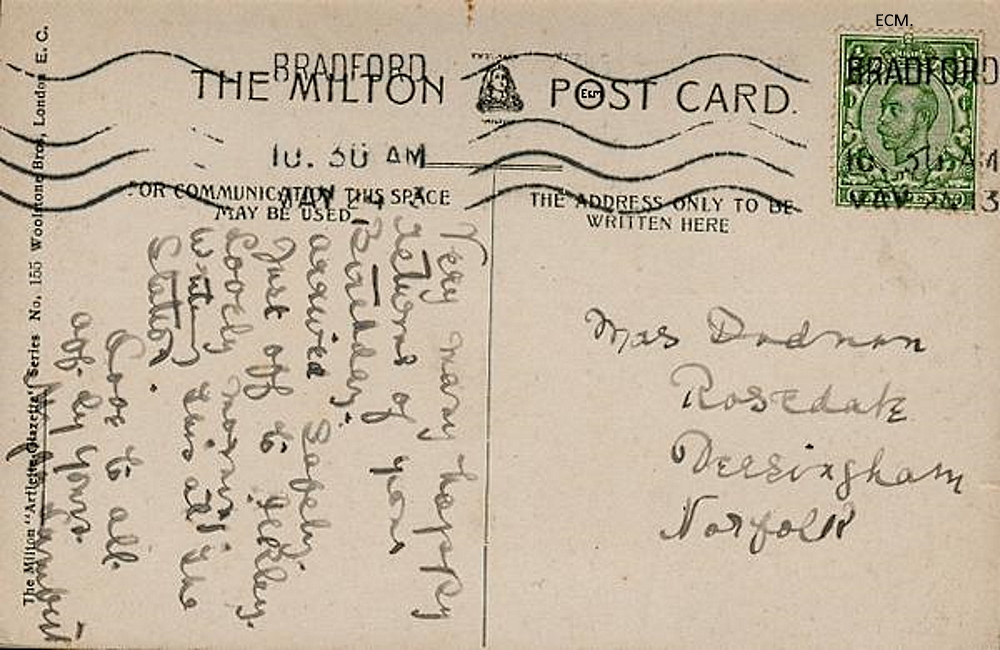 ECM.
BRADFORD
10.30 AM
MAY 24 13
BRADFORD
10.30 AM
MAY 24 13
THE MILTON POST CARD.
ECM
FOR COMMUNICATION THIS SPACE
MAY BE USED
THE ADDRESS ONLY TO BE
WRITTEN HERE
The Milton "Artlette Glazette" Series No. 155 Woolstone Bros, London E. C.
Very many happy
Returns of your
Birthday.
arrived safely.
Just off to Ilkley.
Lovely morning.
writing this at the
Station.
Love to all.
aff.ly yours.
Mrs Dodman
Rosedale
Dersingham
Norfolk